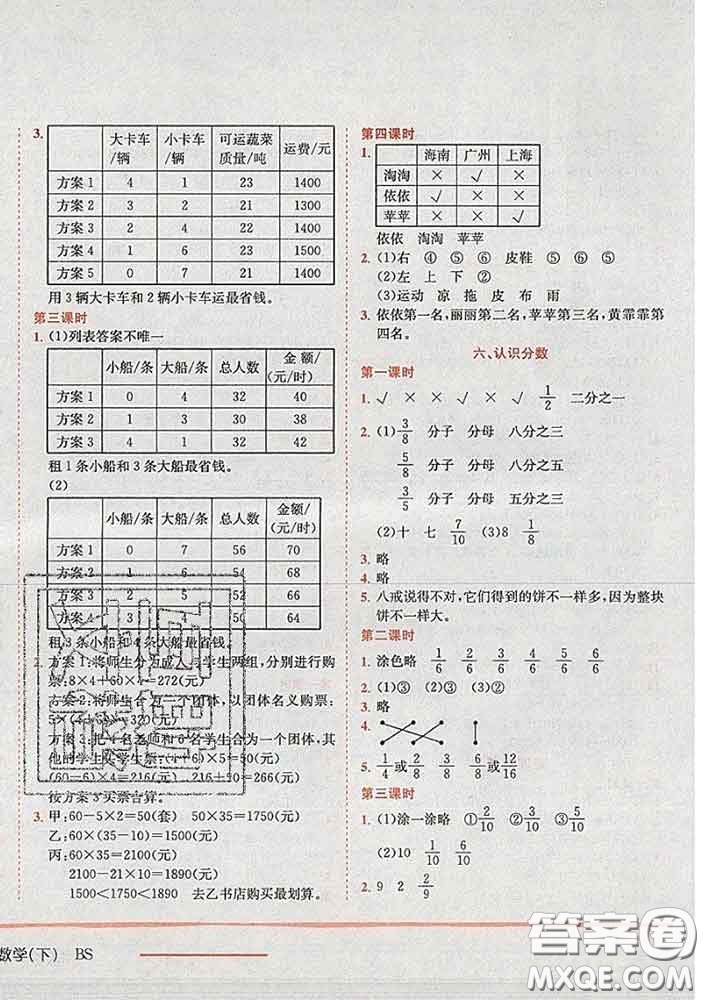 3.
大卡车/辆 小卡车/辆 可运蔬菜质量/吨 运费/元
方案1 4 1 23 1400
方案2 3 2 21 1300
方案3 2 4 22 1400
方案4 1 6 23 1500
方案5 0 7 21 1400
用3辆大卡车和2辆小卡车运最省钱。
第三课时
1. (1)列表答案不唯一
小船/条 大船/条 总人数 金额/(元/时)
方案1 0 4 32 40
方案2 1 3 30 38
方案3 4 1 32 42
租1条小船和3条大船最省钱。
(2)
小船/条 大船/条 总人数 金额/(元/时)
方案1 0 7 56 70
方案2 1 6 54 68
方案3 2 5 52 66
方案4 3 4 50 64
租3条小船和4条大船最省钱。
2. 方案1:将师生分为成人与学生两组,分别进行购
票:8×4+60×4=272(元)
方案2:将师生合为一个团体,以团体名义购票:
5×(4+60)=320(元)
方案3:把4名老师和6名学生合为一个团体,其
他的学生买学生票:(4+6)×5=50(元)
(60-6)×4=216(元) 216+50=266(元)
按方案3买票合算。
3. 甲:60-5×2=50(套) 50×35=1750(元)
乙:60×(35-10)=1500(元)
丙:60×35=2100(元)
2100-21×10=1890(元)
1500<1750<1890 去乙书店购买最划算。
第四课时
1.
海南 广州 上海
淘淘 × √ ×
依依 √ × ×
苹苹 × × √
依依 淘淘 苹苹
2. (1)右 ④ ⑤ ⑥ 皮鞋 ⑤ ⑥
(2)左 上 下 ②
(3)运动 凉 拖 皮 布 雨
3. 依依第一名,丽丽第二名,苹苹第三名,黄霏霏第
四名。
六、认识分数
第一课时
1. √ × × √ × √ 1/2 二分之一
2. (1)3/8 分子 分母 八分之三
5/8 分子 分母 八分之五
3/5 分子 分母 五分之三
(2)十 七 7/10 (3)8 1/8
3. 略
4. 略
5. 八戒说得不对,它们得到的饼不一样多,因为整块
饼不一样大。
第二课时
1. 涂色略 1/6 2/6 3/6 4/6 5/6 6/6
2. (1)③ (2)① (3)②
3. 略
4.
5. 1/4或2/8 3/8 6/8或12/16
第三课时
1. (1)涂一涂略 ①2/10 ②3/10 ③5/10
(2)10 1/10 6/10 4/10
2. 9 2 2/9
数学(下) BS
答案圈
MXQE.COM